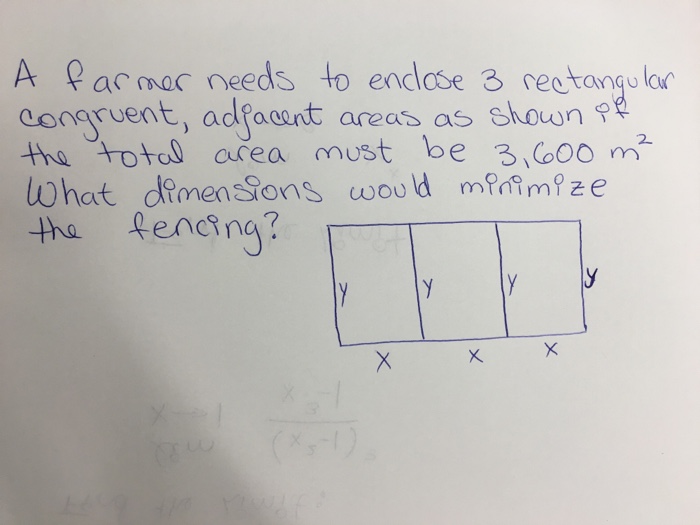 A farmer needs to enclose 3 rectangular
congruent, adjacent areas as shown if
the total area must be 3,600 m²
What dimensions would minimize
the fencing?
y y y y
x x x